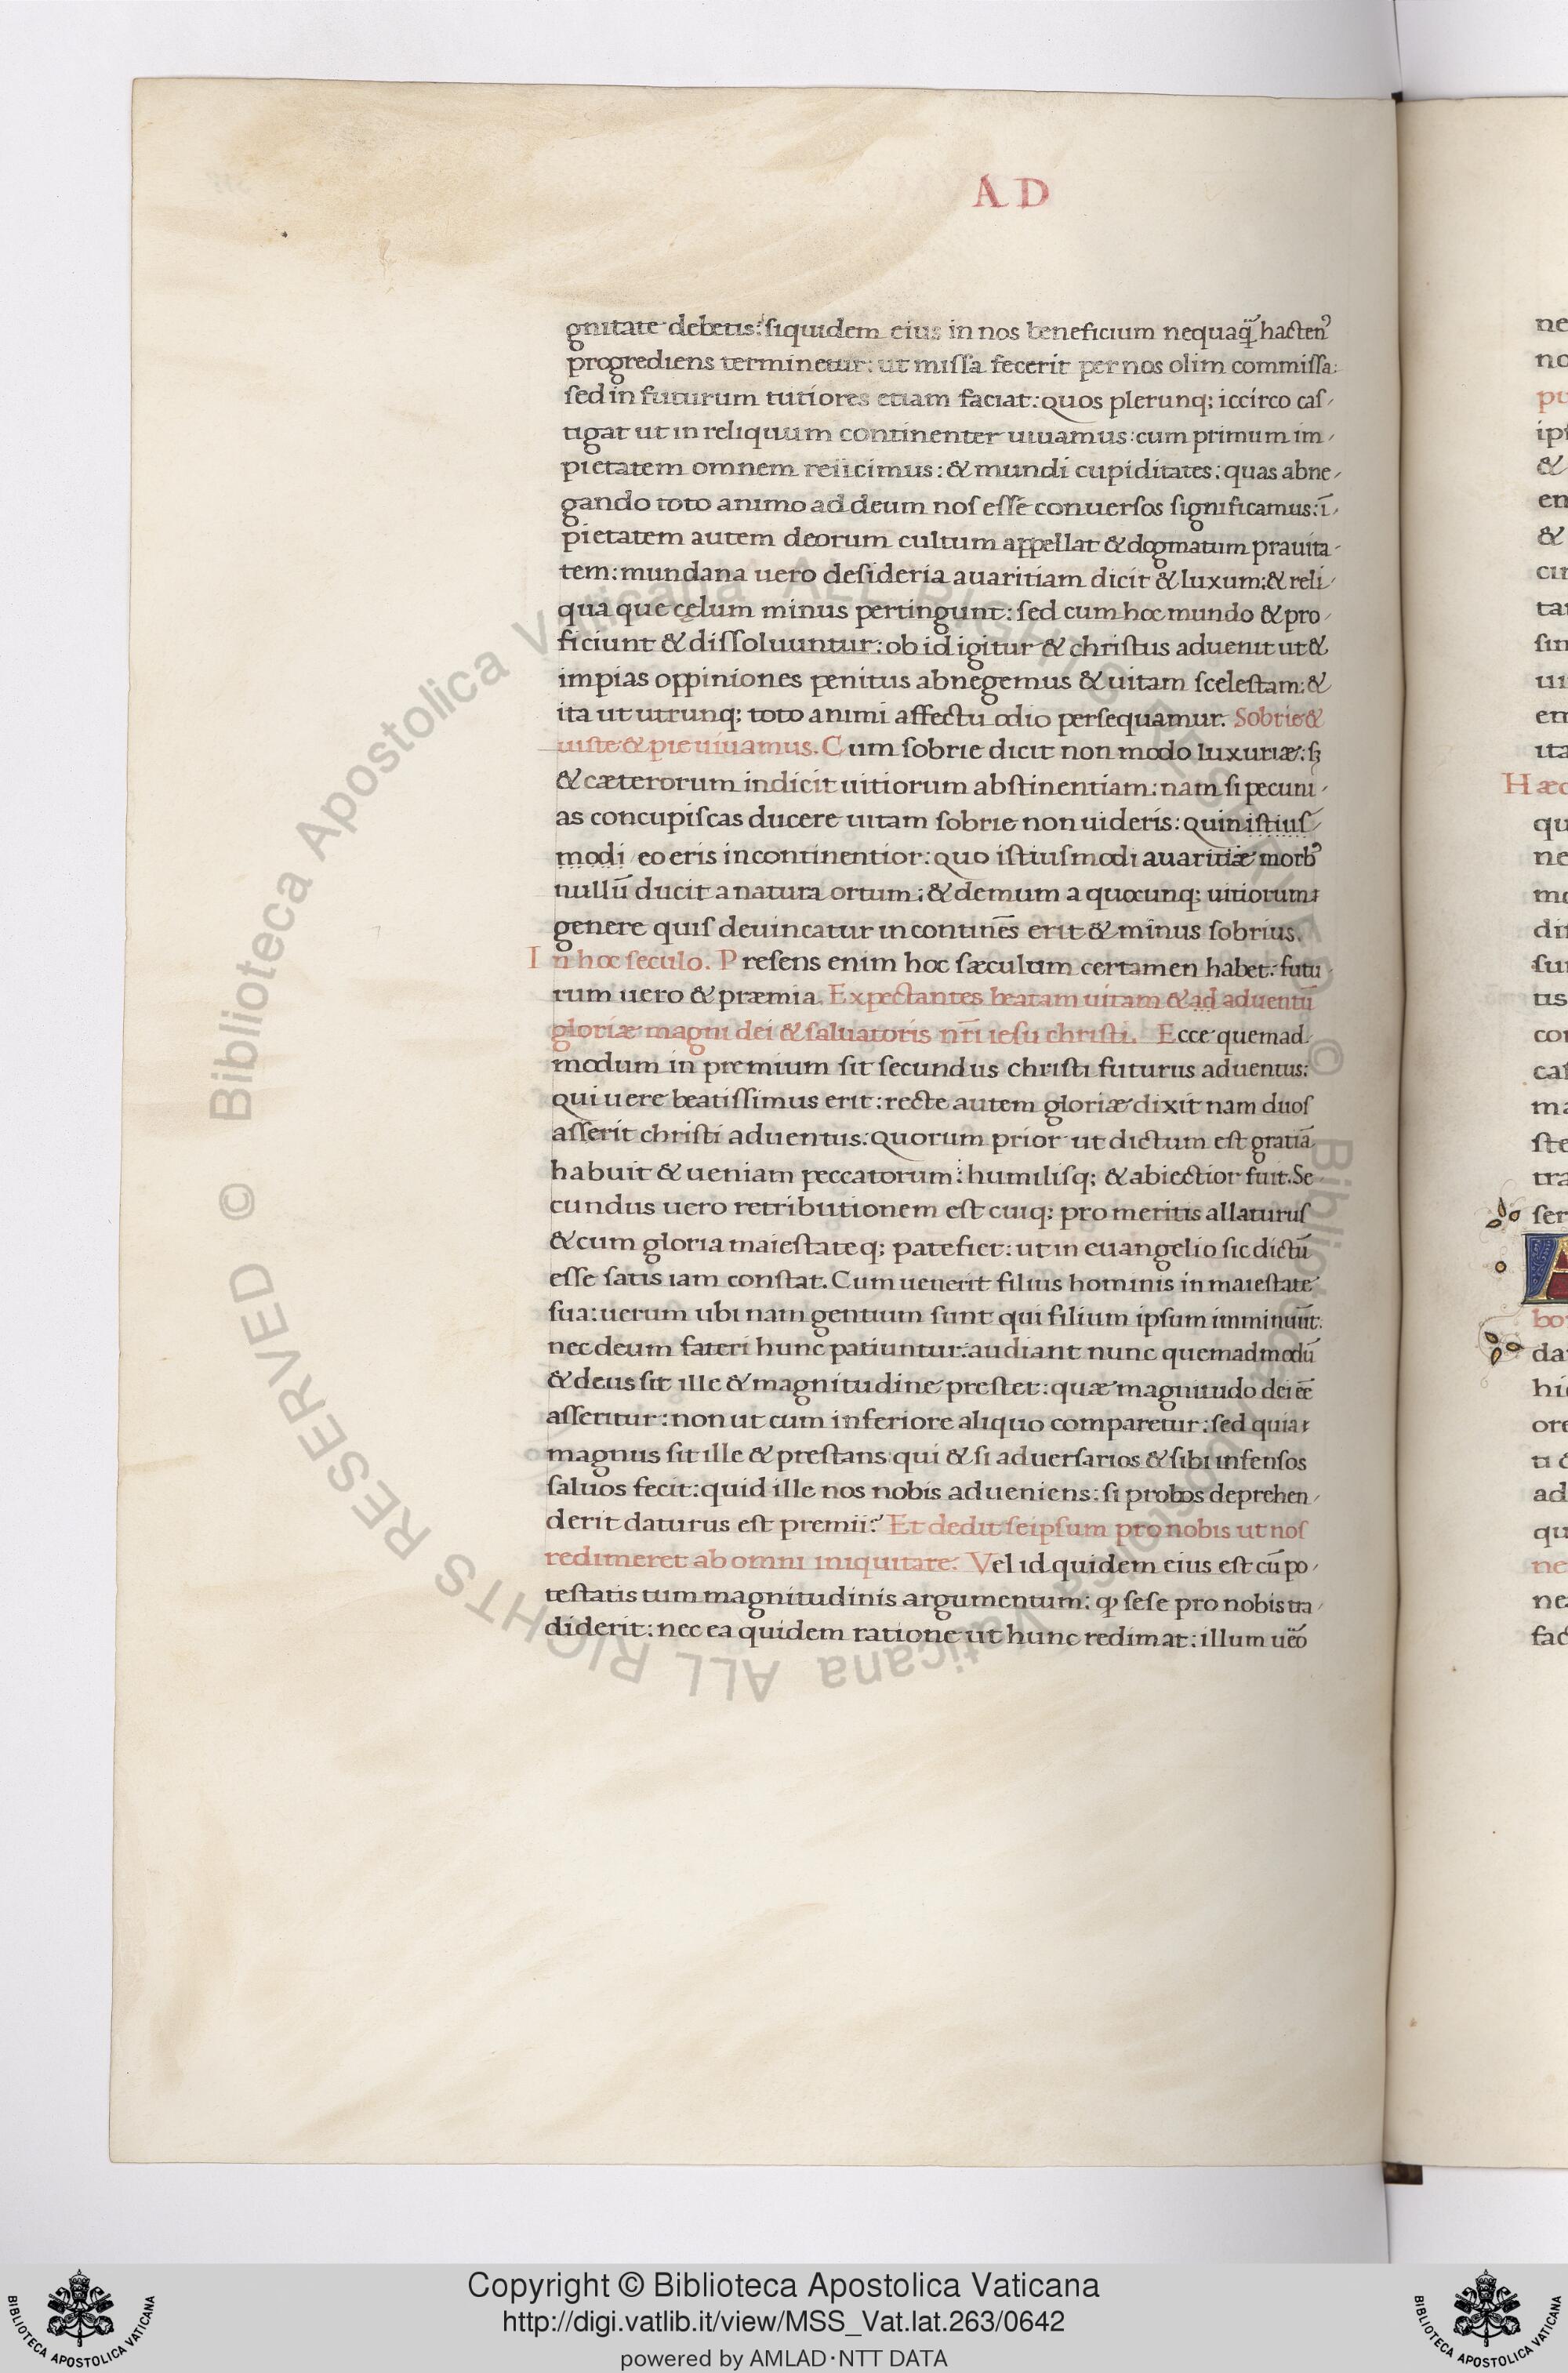 A D
gnitate debetis: siquidem eius in nos beneficium nequaq̃ hacten⁹
progrediens terminetur: ut missa fecerit per nos olim commissa:
sed in futurum tutiores etiam faciat: quos plerunq; iccirco cas-
tigat ut in reliquum continenter uiuamus: cum primum im-
pietatem omnem reiicimus: & mundi cupiditates: quas abne-
gando toto animo ad deum nos esse conuersos significamus: ī-
pietatem autem deorum cultum appellat & dogmatum prauita-
tem: mundana uero desideria auaritiam dicit & luxum: & reli-
qua que cęlum minus pertingunt: sed cum hoc mundo & pro-
ficiunt & dissoluuntur: ob id igitur & christus aduenit ut &
impias oppiniones penitus abnegemus & uitam scelestam: &
ita ut utrunq; toto animi affectu odio persequamur. Sobrie &
iuste & pie uiuamus. Cum sobrie dicit non modo luxuriæ: sꝫ
& cæterorum indicit uitiorum abstinentiam: nam si pecuni-
as concupiscas ducere uitam sobrie non uideris: quin istius-
modi eo eris incontinentior: quo istiusmodi auaritiæ morb⁹
nullū ducit a natura ortum: & demum a quocunq; uitiorum
genere quis deuincatur incontinēs erit & minus sobrius.
In hoc seculo. Presens enim hoc sæculum certamen habet: futu-
rum uero & præmia. Expectantes beatam uitam & ad aduentū
gloriæ magni dei & saluatoris nr̄i iesu christi. Ecce quemad-
modum in premium sit secundus christi futurus aduentus:
qui uere beatissimus erit: recte autem gloriæ dixit nam duos
asserit christi aduentus: quorum prior ut dictum est gratiā
habuit & ueniam peccatorum: humilisq; & abiectior fuit. Se-
cundus uero retributionem est cuiq; pro meritis allaturus
& cum gloria maiestateq; patefiet: ut in euangelio sic dictū
esse satis iam constat. Cum uenerit filius hominis in maiestate
sua: uerum ubi nam gentium sunt qui filium ipsum imminuūt:
nec deum fateri hunc patiuntur: audiant nunc quemadmodū
& deus sit ille & magnitudine prestet: quæ magnitudo dei eē
asseritur: non ut cum inferiore aliquo comparetur: sed quia
magnus sit ille & prestans: qui & si aduersarios & sibi infensos
saluos fecit: quid ille nos nobis adueniens: si probos deprehen-
derit daturus est premii? Et dedit seipsum pro nobis ut nos
redimeret ab omni iniquitate. Vel id quidem eius est cū po-
testatis tum magnitudinis argumentum: ꝙ sese pro nobis tra-
diderit: nec ea quidem ratione ut hunc redimat: illum uēo
Copyright © Biblioteca Apostolica Vaticana
http://digi.vatlib.it/view/MSS_Vat.lat.263/0642
powered by AMLAD·NTT DATA
BIBLIOTECA APOSTOLICA VATICANA
BIBLIOTECA APOSTOLICA VATICANA
© Biblioteca Apostolica Vaticana ALL RIGHTS RESERVED © Biblioteca Apostolica Vaticana ALL RIGHTS RESERVED